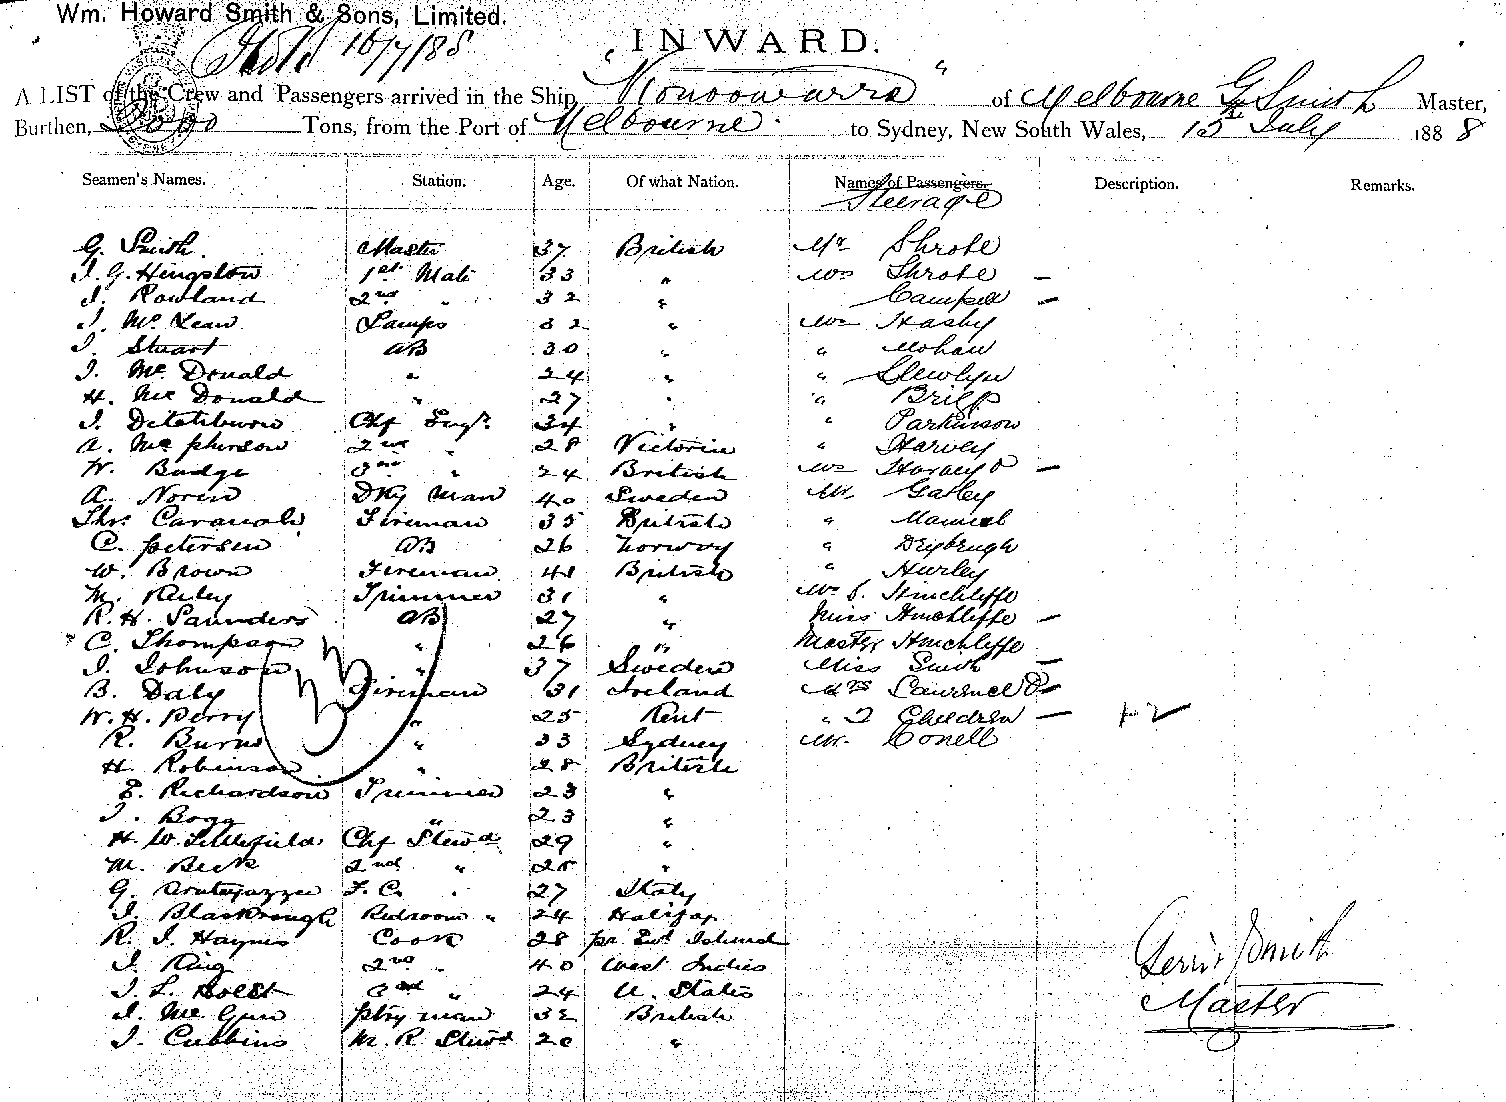 Wm. Howard Smith & Sons, Limited.
16/7/88
INWARD.
A LIST of the Crew and Passengers arrived in the Ship "Konoowarra" of Melbourne G Smith Master,
Burthen, Tons, from the Port of Melbourne. to Sydney, New South Wales, 15th July 1888
Seamen's Names. Station. Age. Of what Nation. Names of Passengers. Description. Remarks.
Steerage
G. Smith. Master 37 British Mr Shrobe
J. G. Hingston 1st Mate 33 " Mrs Shrobe —
J. Rowland 2nd " 32 " Campbell —
J. Mc Lean Lamps 32 " Mr Hasby
J. Stuart AB 30 " " Mohan
J. Mc Donald " 24 " " Llewlyn
H. Mc Donald " 27 " "
J. Ditchburn Chf Engr. 34 " " Parkinson
A. Mc pherson 2nd " 28 Victoria " Harvey
W. Budge 3rd " 24 British Mrs Harvey —
A. Noren Dky man 40 Sweden Mr Gatley
Thos Cavanah Fireman 35 British "
C. petersen AB 26 Norway " Drybrugh
W. Brown Fireman 41 British " Hurley
M. Ruley Trimmer 31 " Hinchliffe
R. H. Saunders AB 27 " Miss Hinchliffe —
C. Thompson " 26 " Master Hinchliffe
J. Johnson " 37 Sweden Miss Smith —
B. Daly Fireman 31 Ireland Mrs Lawrence —
W. H. Perry " 25 Kent " 2 Children — + 2
R. Burns " 33 Sydney Mr. Conell
H. Robinson " 28 British
E. Richardson Trimmer 23 "
J. Bogg " 23 "
H. W. Littlefield Chf Stewd 29 "
M. Beck 2nd " "
G. F. C. " 27 Italy
J. Blackrough Bedroom " 24 Halifax
R. J. Haynes Cook 28 pr Ewd Island
J. King 2nd " 40 West Indies
J. L. Holst 3rd " 24 U. States
J. Mc Gun ptry man 32 British
J. Cubbins M. R. Stewd 20 "
Smith
Master